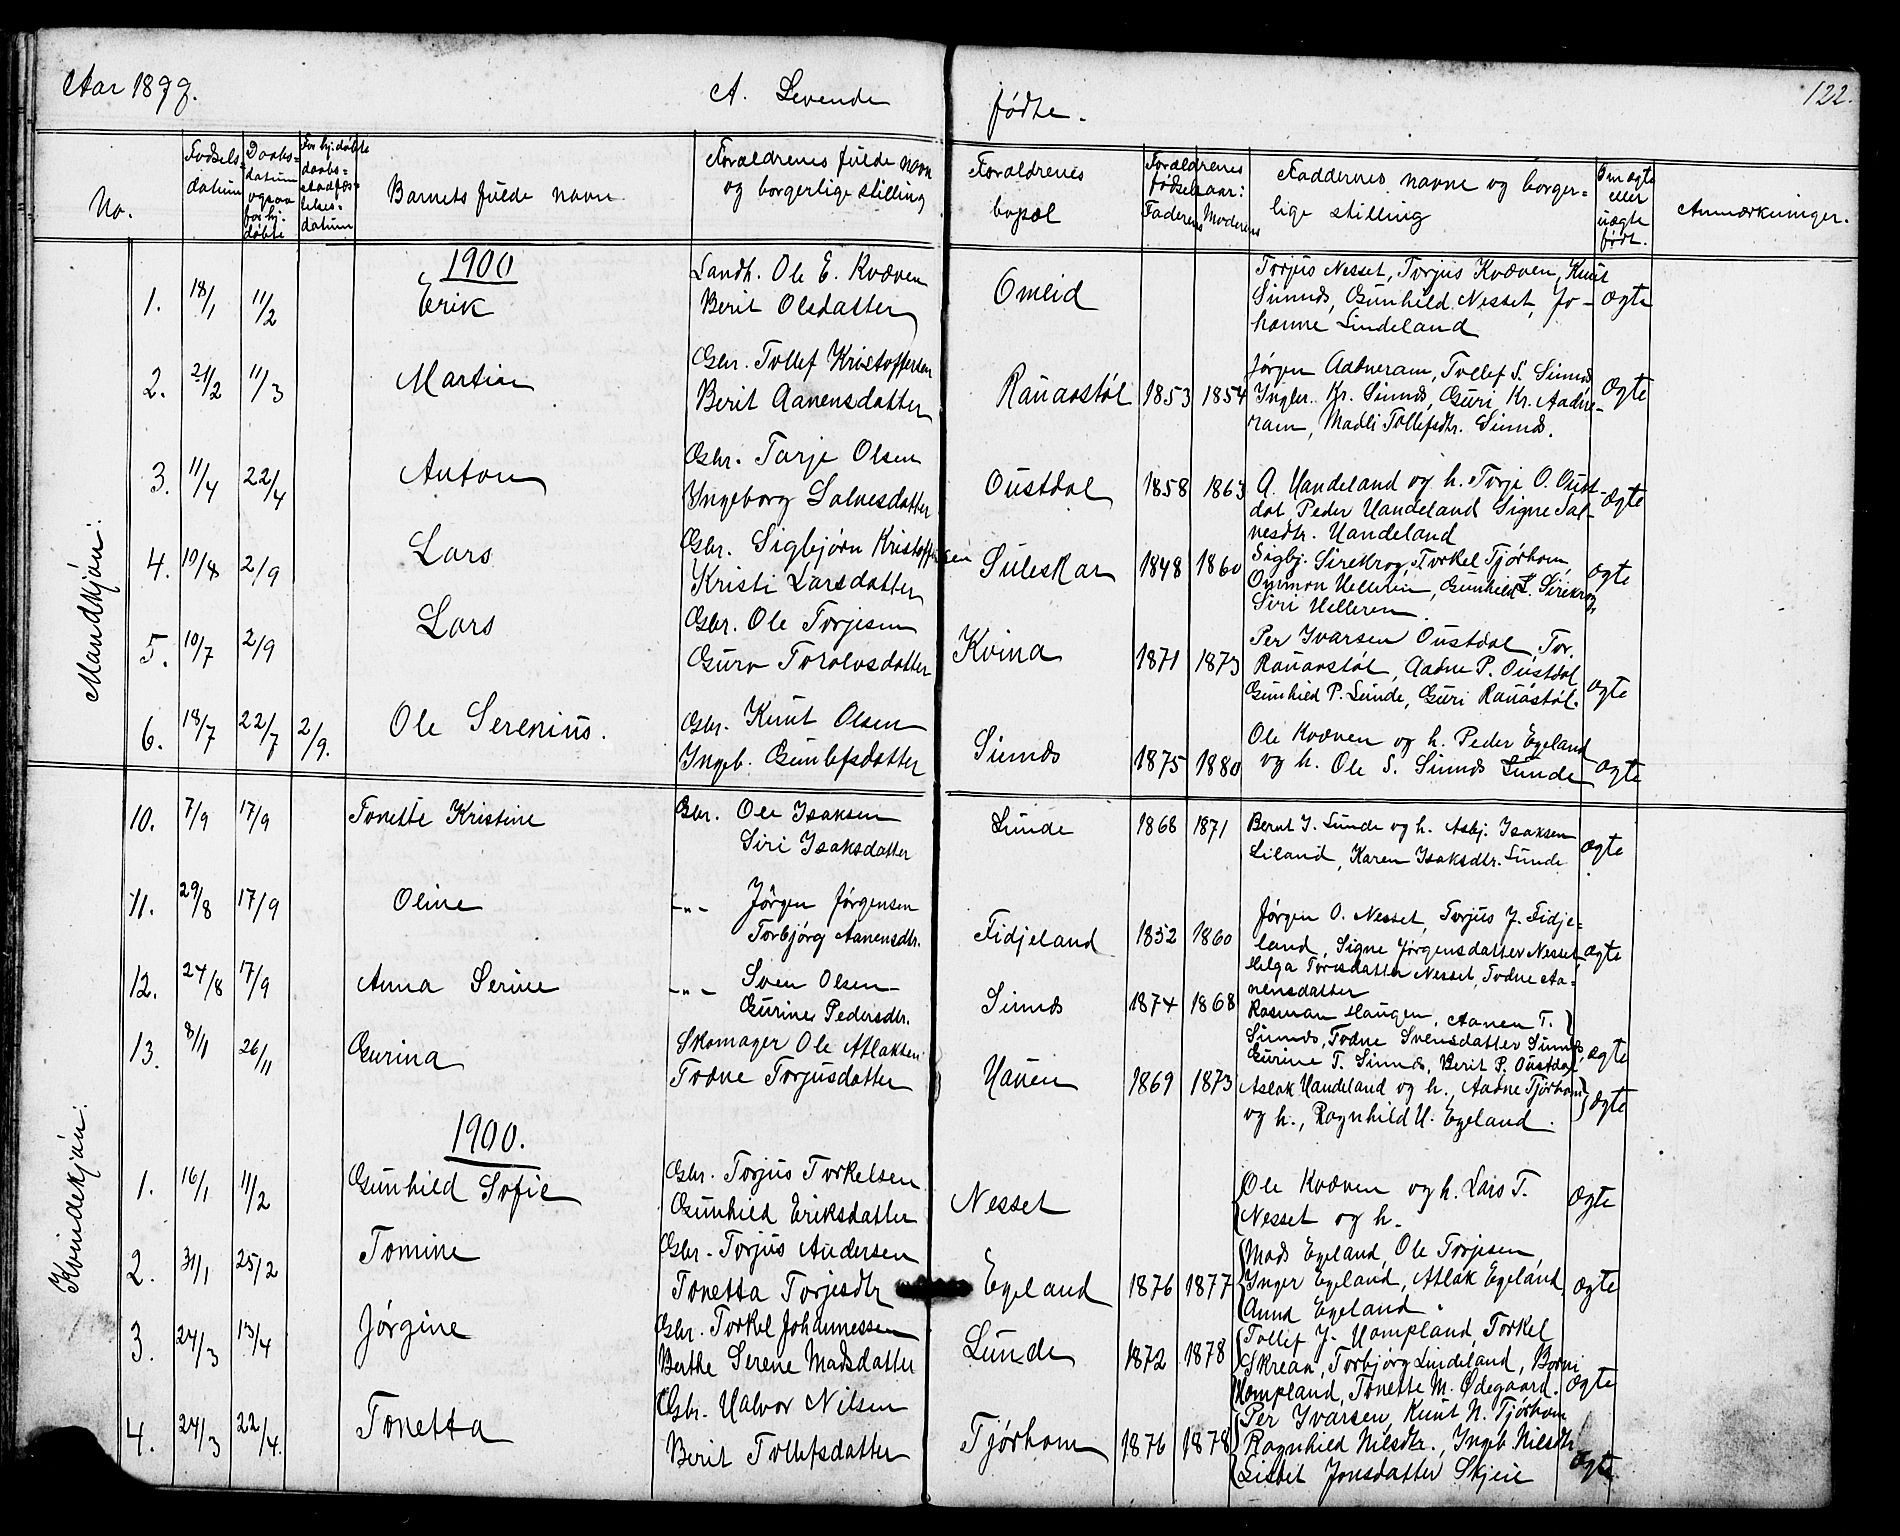 Aar 1899.
A. Levende
fødte.
122.
No.
Fødsels-
datum
Daabs-
datum
ogsaa
for hj.
døbte
For hj. døbte
daabs-
stadfæs-
telses-
datum
Barnets fulde navn
Forældrenes fulde navn
og borgerlige stilling
Forældrenes
bopæl
Forældrenes
fødselsaar:
Faderens
Moderens
Faddernes navne og borger-
lige stilling
Om ægte
eller
uægte
født.
Anmærkninger.
Mandkjøn:
1900
1. 18/1 11/2 Erik
Landh. Ole E. Kvæven
Berit Olsdatter
Omlid
Torjus Nesset, Torjus Kvæven, Knut
Sinnes, Gunhild Nesset, Jo-
hanne Lindeland
ægte
2. 21/2 11/3 Martin
Gbr. Tollef Kristoffersen
Berit Aanensdatter
Rauarstøl 1853 1854
Jørgen Aadneram, Tollef S. Sinnes
Ingbr. Kr. Sinnes, Guri Kr. Aadne-
ram, Madli Tollefsdtr. Sinnes.
ægte
3. 11/4 22/4 Anton
Gbr. Tarje Olsen
Ingeborg Salvesdatter
Oustdal 1858 1863
A. Handeland og h. Torje O. Oust-
dal Peder Handeland Signe Sal-
vesdtr. Handeland
ægte
4. 10/8 2/9 Lars
Gbr. Sigbjørn Kristoffersen
Kristi Larsdatter
Suleskar 1848 1860
Sigbj. Sirekrog, Torkel Tjørhom,
Ommon Helleren, Gunhild L. Sirekrog
Siri Helleren.
ægte
5. 10/7 2/9 Lars
Gbr. Ole Torjesen
Guro Toralvsdatter
Kvina 1871 1873
Per Ivarsen Oustdal, Tor.
Rauarstøl, Aadne P. Oustdal
Gunhild P. Lunde, Guri Rauastøl.
ægte
6. 18/7 22/7 2/9. Ole Serenius.
Gbr. Knut Olsen
Ingeb. Gunlefsdatter
Sinnes 1875 1880
Ole Kvæven og h. Peder Egeland
og h. Ole S. Sinnes Lunde
ægte
Kvindekjøn:
10. 7/9 17/9 Tonette Kristine
Gbr. Ole Isaksen
Siri Isaksdatter
Lunde 1868 1871
Bernt I. Lunde og h. Asbj. Isaksen
Liland, Karen Isaksdtr. Lunde
ægte
11. 29/8 17/9 Oline
-"- Jörgen Jørgensen
Torbjørg Aanensdtr.
Fidjeland 1852 1860
Jørgen O. Nesset, Torjus J. Fidje-
land, Signe Jørgensdatter Nesset
Helga Torisdatter Nesset, Todne Aa-
nensdatter
ægte
12. 24/8 17/9 Anna Serine
-"- Sven Olsen
Gurine Pedersdtr.
Sinnes 1874 1868
Rasman Haugen, Aanen T.
Sinnes, Todne Svensdatter Sinnes
Gurine T. Sinnes, Berit P. Oustdal
ægte
13. 8/11 26/11 Gurina
Skomager Ole Atlaksen
Todne Torjusdatter
Hauen 1869 1873
Aslak Handeland og h., Aadne Tjørhom
og h., Ragnhild H. Egeland.
ægte
1900.
1. 16/1 11/2 Gunhild Sofie
Gbr. Torjus Torkelsen
Gunhild Eriksdatter
Nesset
Ole Kvæven og h. Lars T.
Nesset og h.
ægte
2. 31/1 25/2 Tomine
Gbr. Torjus Andersen
Tonetta Torjesdtr
Egeland 1876 1877
Mads Egeland, Ole Torjesen,
Inger Egeland, Atlak Egeland
Anna Egeland
ægte
3. 24/3 13/4 Jørgine
Gbr. Torkel Johannessen
Berthe Serene Madsdatter
Lunde 1872 1878
Tollef J. Hompland, Torkel
Skrean, Torbjørg Lindeland, Borni
Hompland, Tonette M. Ødegaard.
ægte
4. 24/3 22/4. Tonetta
Gbr. Halvor Nilsen
Berit Tollefsdatter
Tjørhom 1876 1878
Per Ivarsen, Knut N. Tjørhom
Ragnhild Nilsdtr., Ingeb. Nilsdtr
Lisbet Jonsdatter Skjeie
ægte